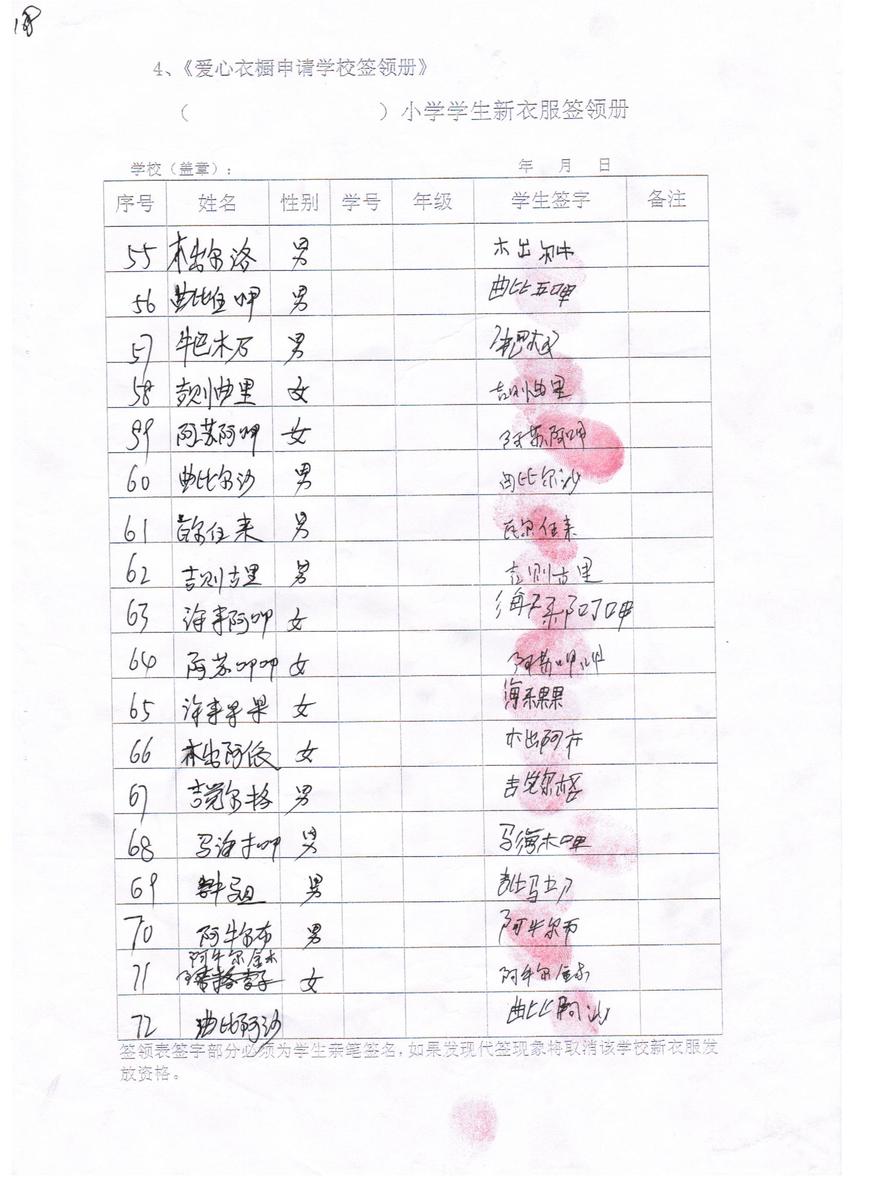 18
4、《爱心衣橱申请学校签领册》
（ ）小学学生新衣服签领册
学校（盖章）： 年 月 日
序号 姓名 性别 学号 年级 学生签字 备注
55 木出尔洛 男 木出尔
56 曲比伍呷 男 曲比五呷
57 牛巴木石 男
58 吉则曲里 女 吉则曲里
59 阿苏阿呷 女 阿苏阿呷
60 曲比尔沙 男 曲比尔沙
61 尔伍来 男 瓦尔伍来
62 吉则古里 男 吉则古里
63 海来阿呷 女 海来阿呷
64 阿苏呷呷 女 阿苏呷呷
65 海来果果 女 海来果果
66 木出阿依 女 木出阿
67 吉觉尔格 男 吉觉尔格
68 马海木呷 男 马海木呷
69 男
70 阿牛尔布 男 阿牛尔布
阿牛尔金木
71 女 阿牛尔金
72 曲比阿沙 曲比阿沙
签领表签字部分必须为学生亲笔签名，如果发现代签现象将取消该学校新衣服发
放资格。